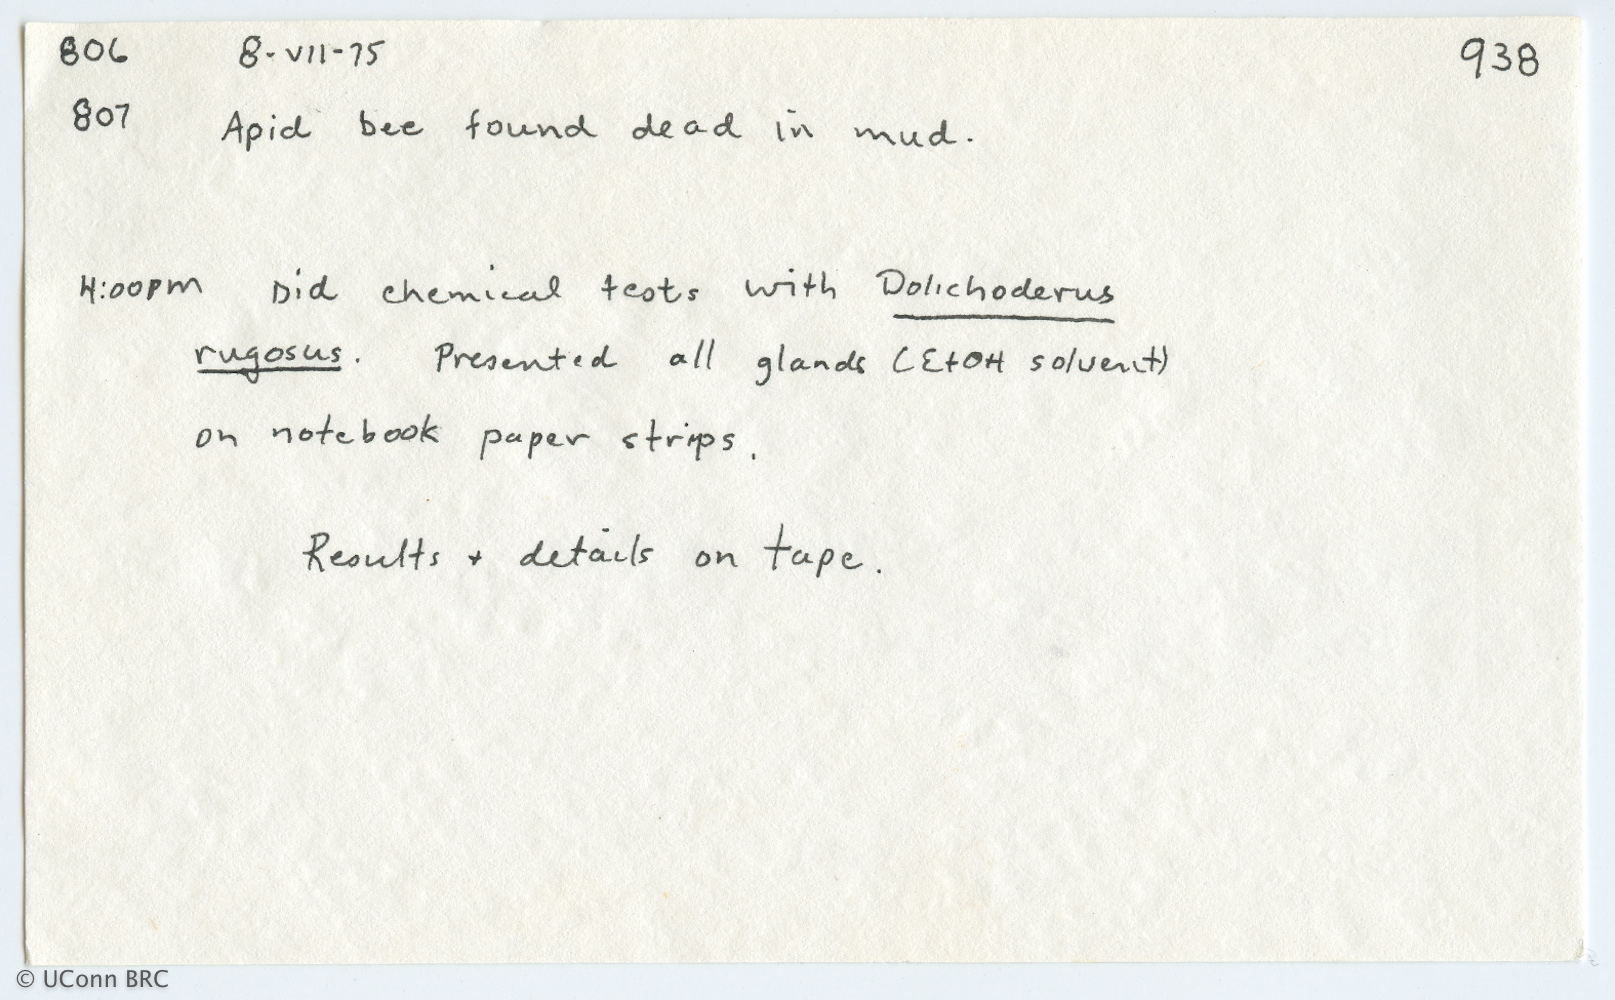 806 8-VII-75 938
807 Apid bee found dead in mud.
4:00pm Did chemical tests with Dolichoderus
rugosus. Presented all glands (EtOH solvent)
on notebook paper strips.
Results + details on tape.
© UConn BRC